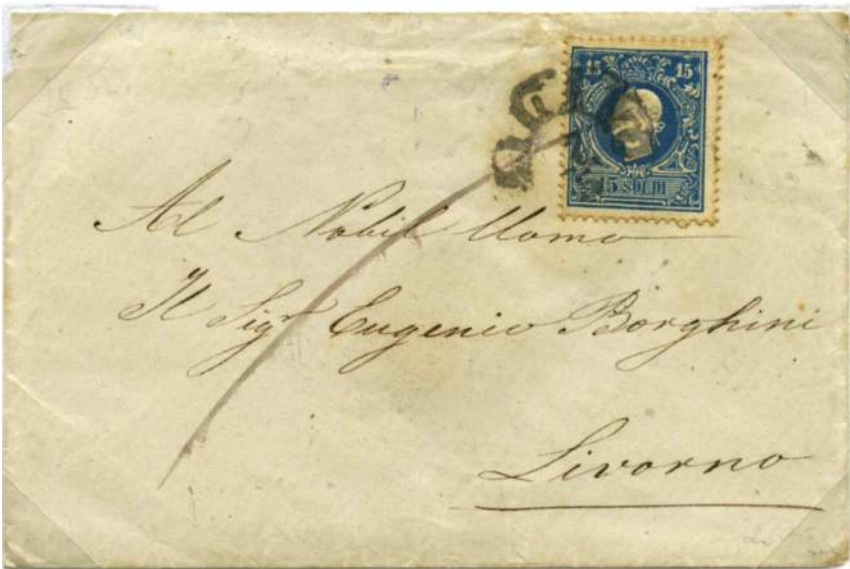 15 15
15 SOLDI
Al Nobil Uomo
Il Sigr Eugenio Borghini
Livorno